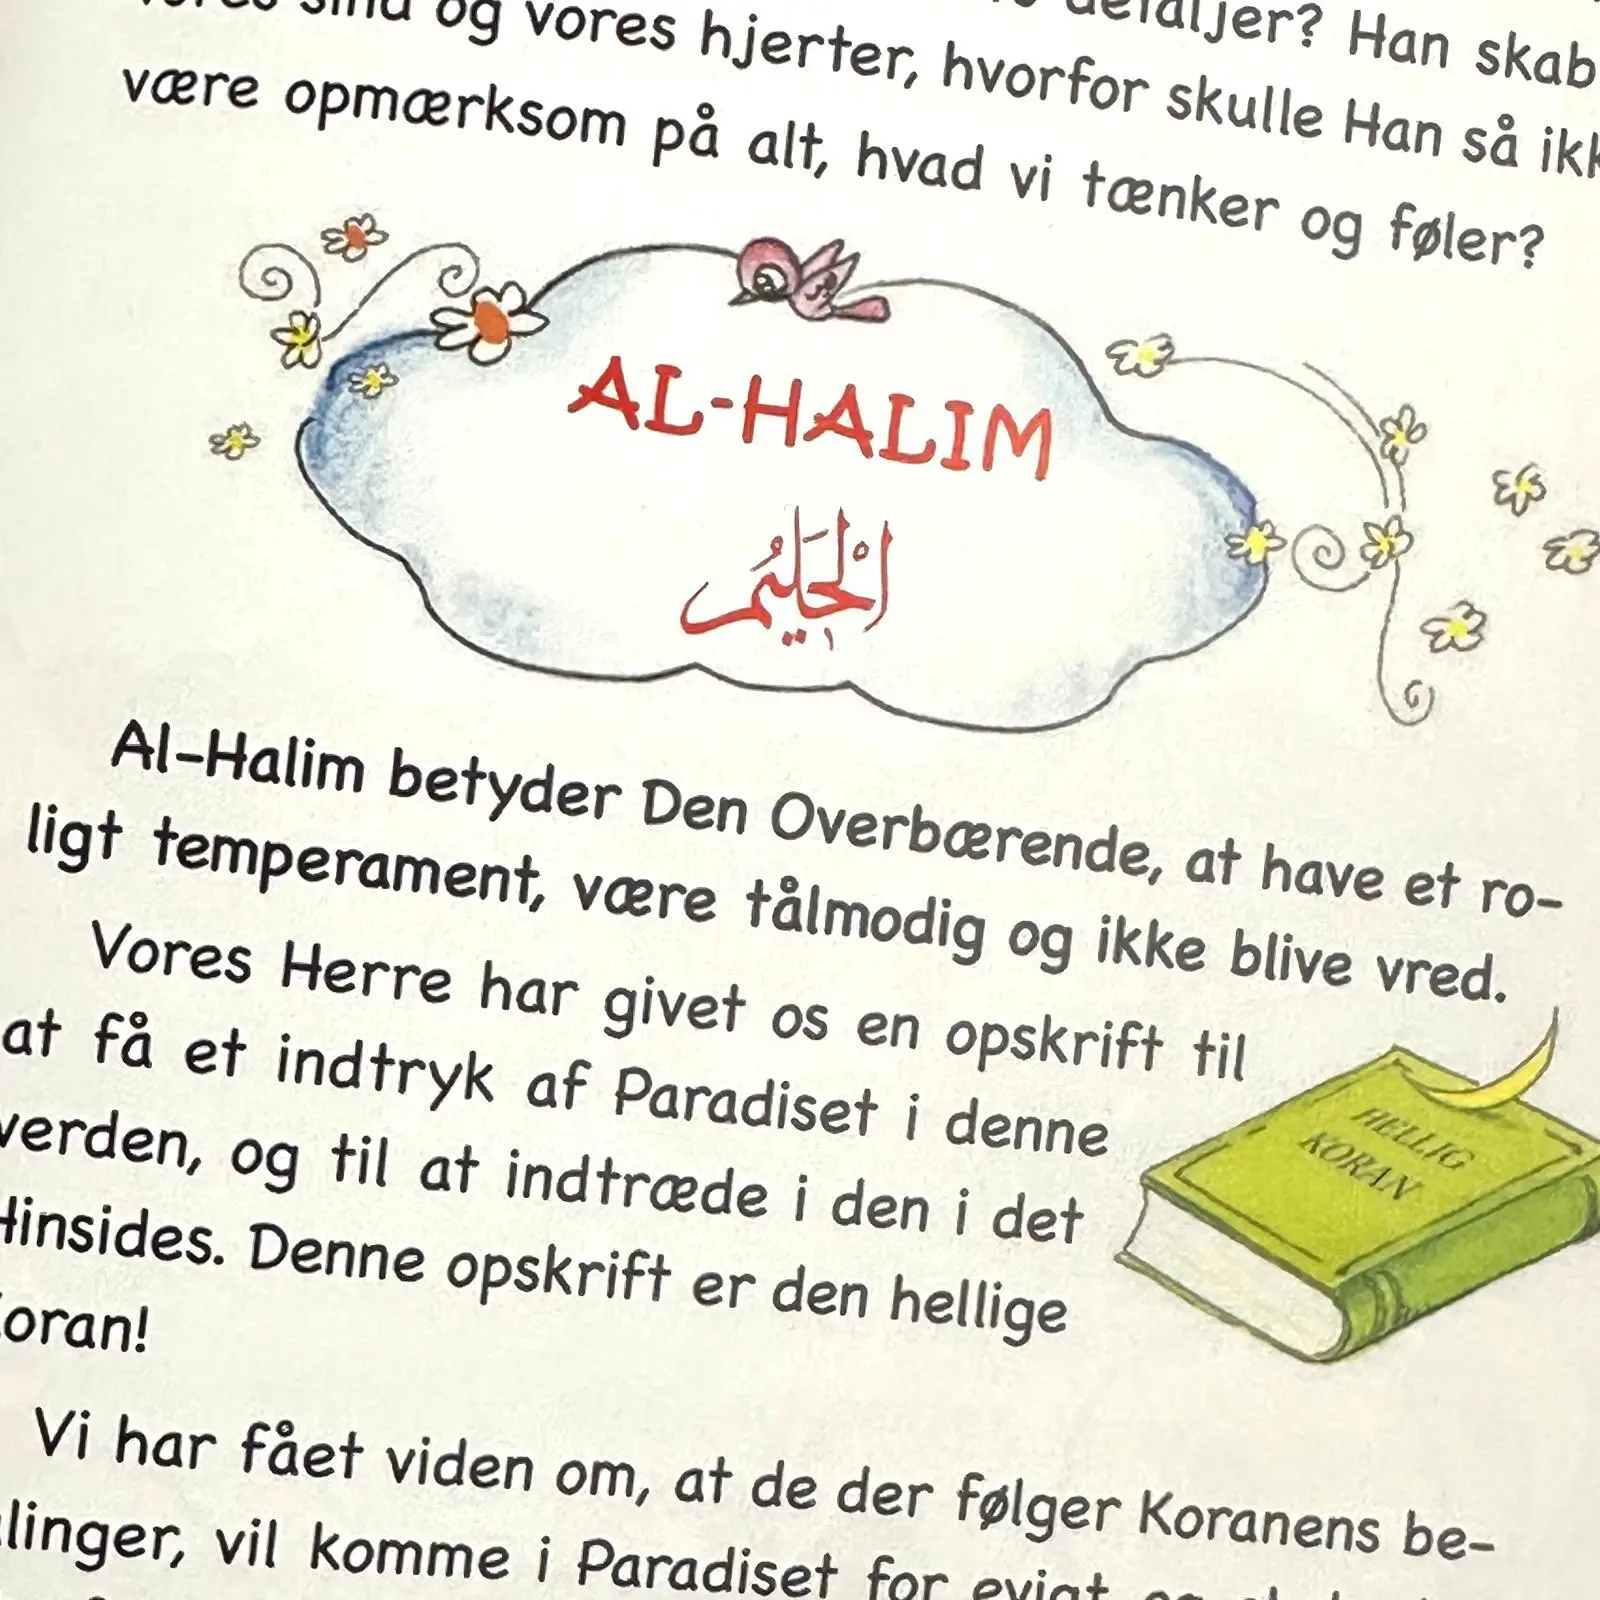 sind og vores hjerter, hvorfor skulle Han så
detaljer? Han
være opmærksom på alt, hvad vi tænker og føler?
AL-HALIM
الْحَلِيُم
Al-Halim betyder Den Overbærende, at have et ro-
ligt temperament, være tålmodig og ikke blive vred.
Vores Herre har givet os en opskrift til
at få et indtryk af Paradiset i denne
verden, og til at indtræde i den i det
Hinsides. Denne opskrift er den hellige
Koran!
HELLIG
KORAN
Vi har fået viden om, at de der følger Koranens be-
linger, vil komme i Paradiset for evigt og